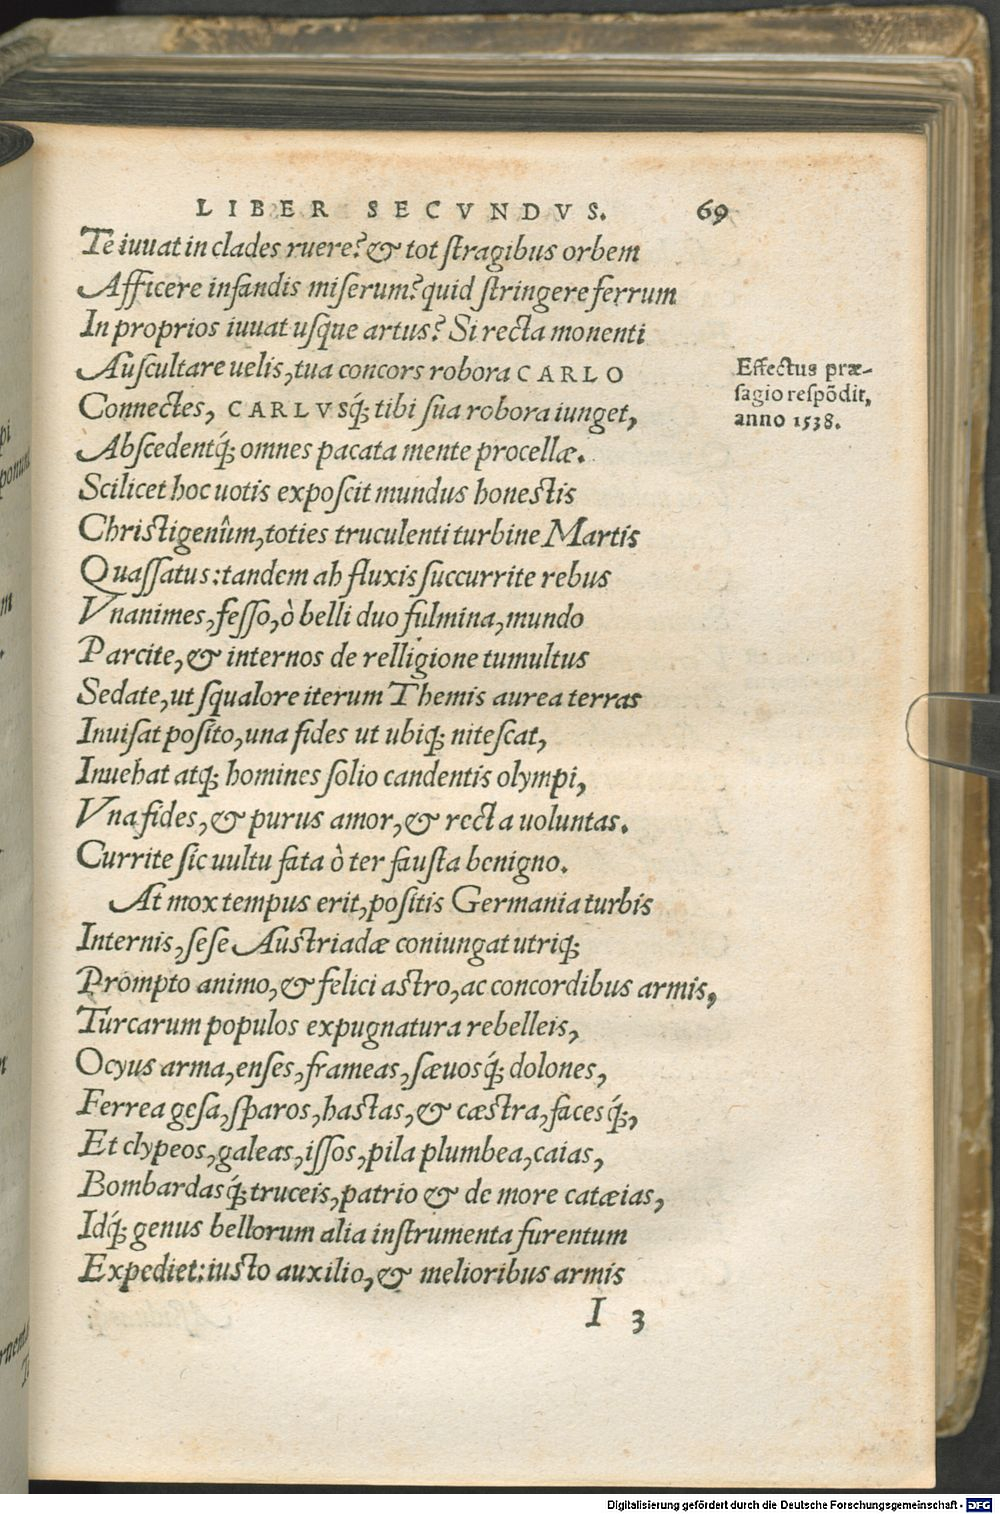 LIBER SECVNDVS. 69
Te iuuat in clades ruere? & tot ſtragibus orbem
Afficere infandis miſerum? quid ſtringere ferrum
In proprios iuuat uſque artus? Si recta monenti
Auſcultare uelis, tua concors robora CARLO
Connectes, CARLVSq́; tibi ſua robora iunget,
Abſcedentq́; omnes pacata mente procellæ.
Effectus præ-
ſagio reſpõdit,
anno 1538.
Scilicet hoc uotis expoſcit mundus honeſtis
Chriſtigenûm, toties truculenti turbine Martis
Quaſſatus: tandem ah fluxis ſuccurrite rebus
Vnanimes, feſſo, ò belli duo fulmina, mundo
Parcite, & internos de relligione tumultus
Sedate, ut ſqualore iterum Themis aurea terras
Inuiſat poſito, una fides ut ubiq; niteſcat,
Inuehat atq; homines ſolio candentis olympi,
Vna fides, & purus amor, & recta uoluntas.
Currite ſic uultu fata ò ter fauſta benigno.
At mox tempus erit, poſitis Germania turbis
Internis, ſeſe Auſtriadæ coniungat utriq;
Prompto animo, & felici aſtro, ac concordibus armis,
Turcarum populos expugnatura rebelleis,
Ocyus arma, enſes, frameas, ſæuosq́; dolones,
Ferrea geſa, ſparos, haſtas, & cæſtra, facesq́;,
Et clypeos, galeas, iſſos, pila plumbea, caias,
Bombardasq́; truceis, patrio & de more catæias,
Idq́; genus bellorum alia inſtrumenta furentum
Expediet: iuſto auxilio, & melioribus armis
I 3
Digitalisierung gefördert durch die Deutsche Forschungsgemeinschaft - DFG